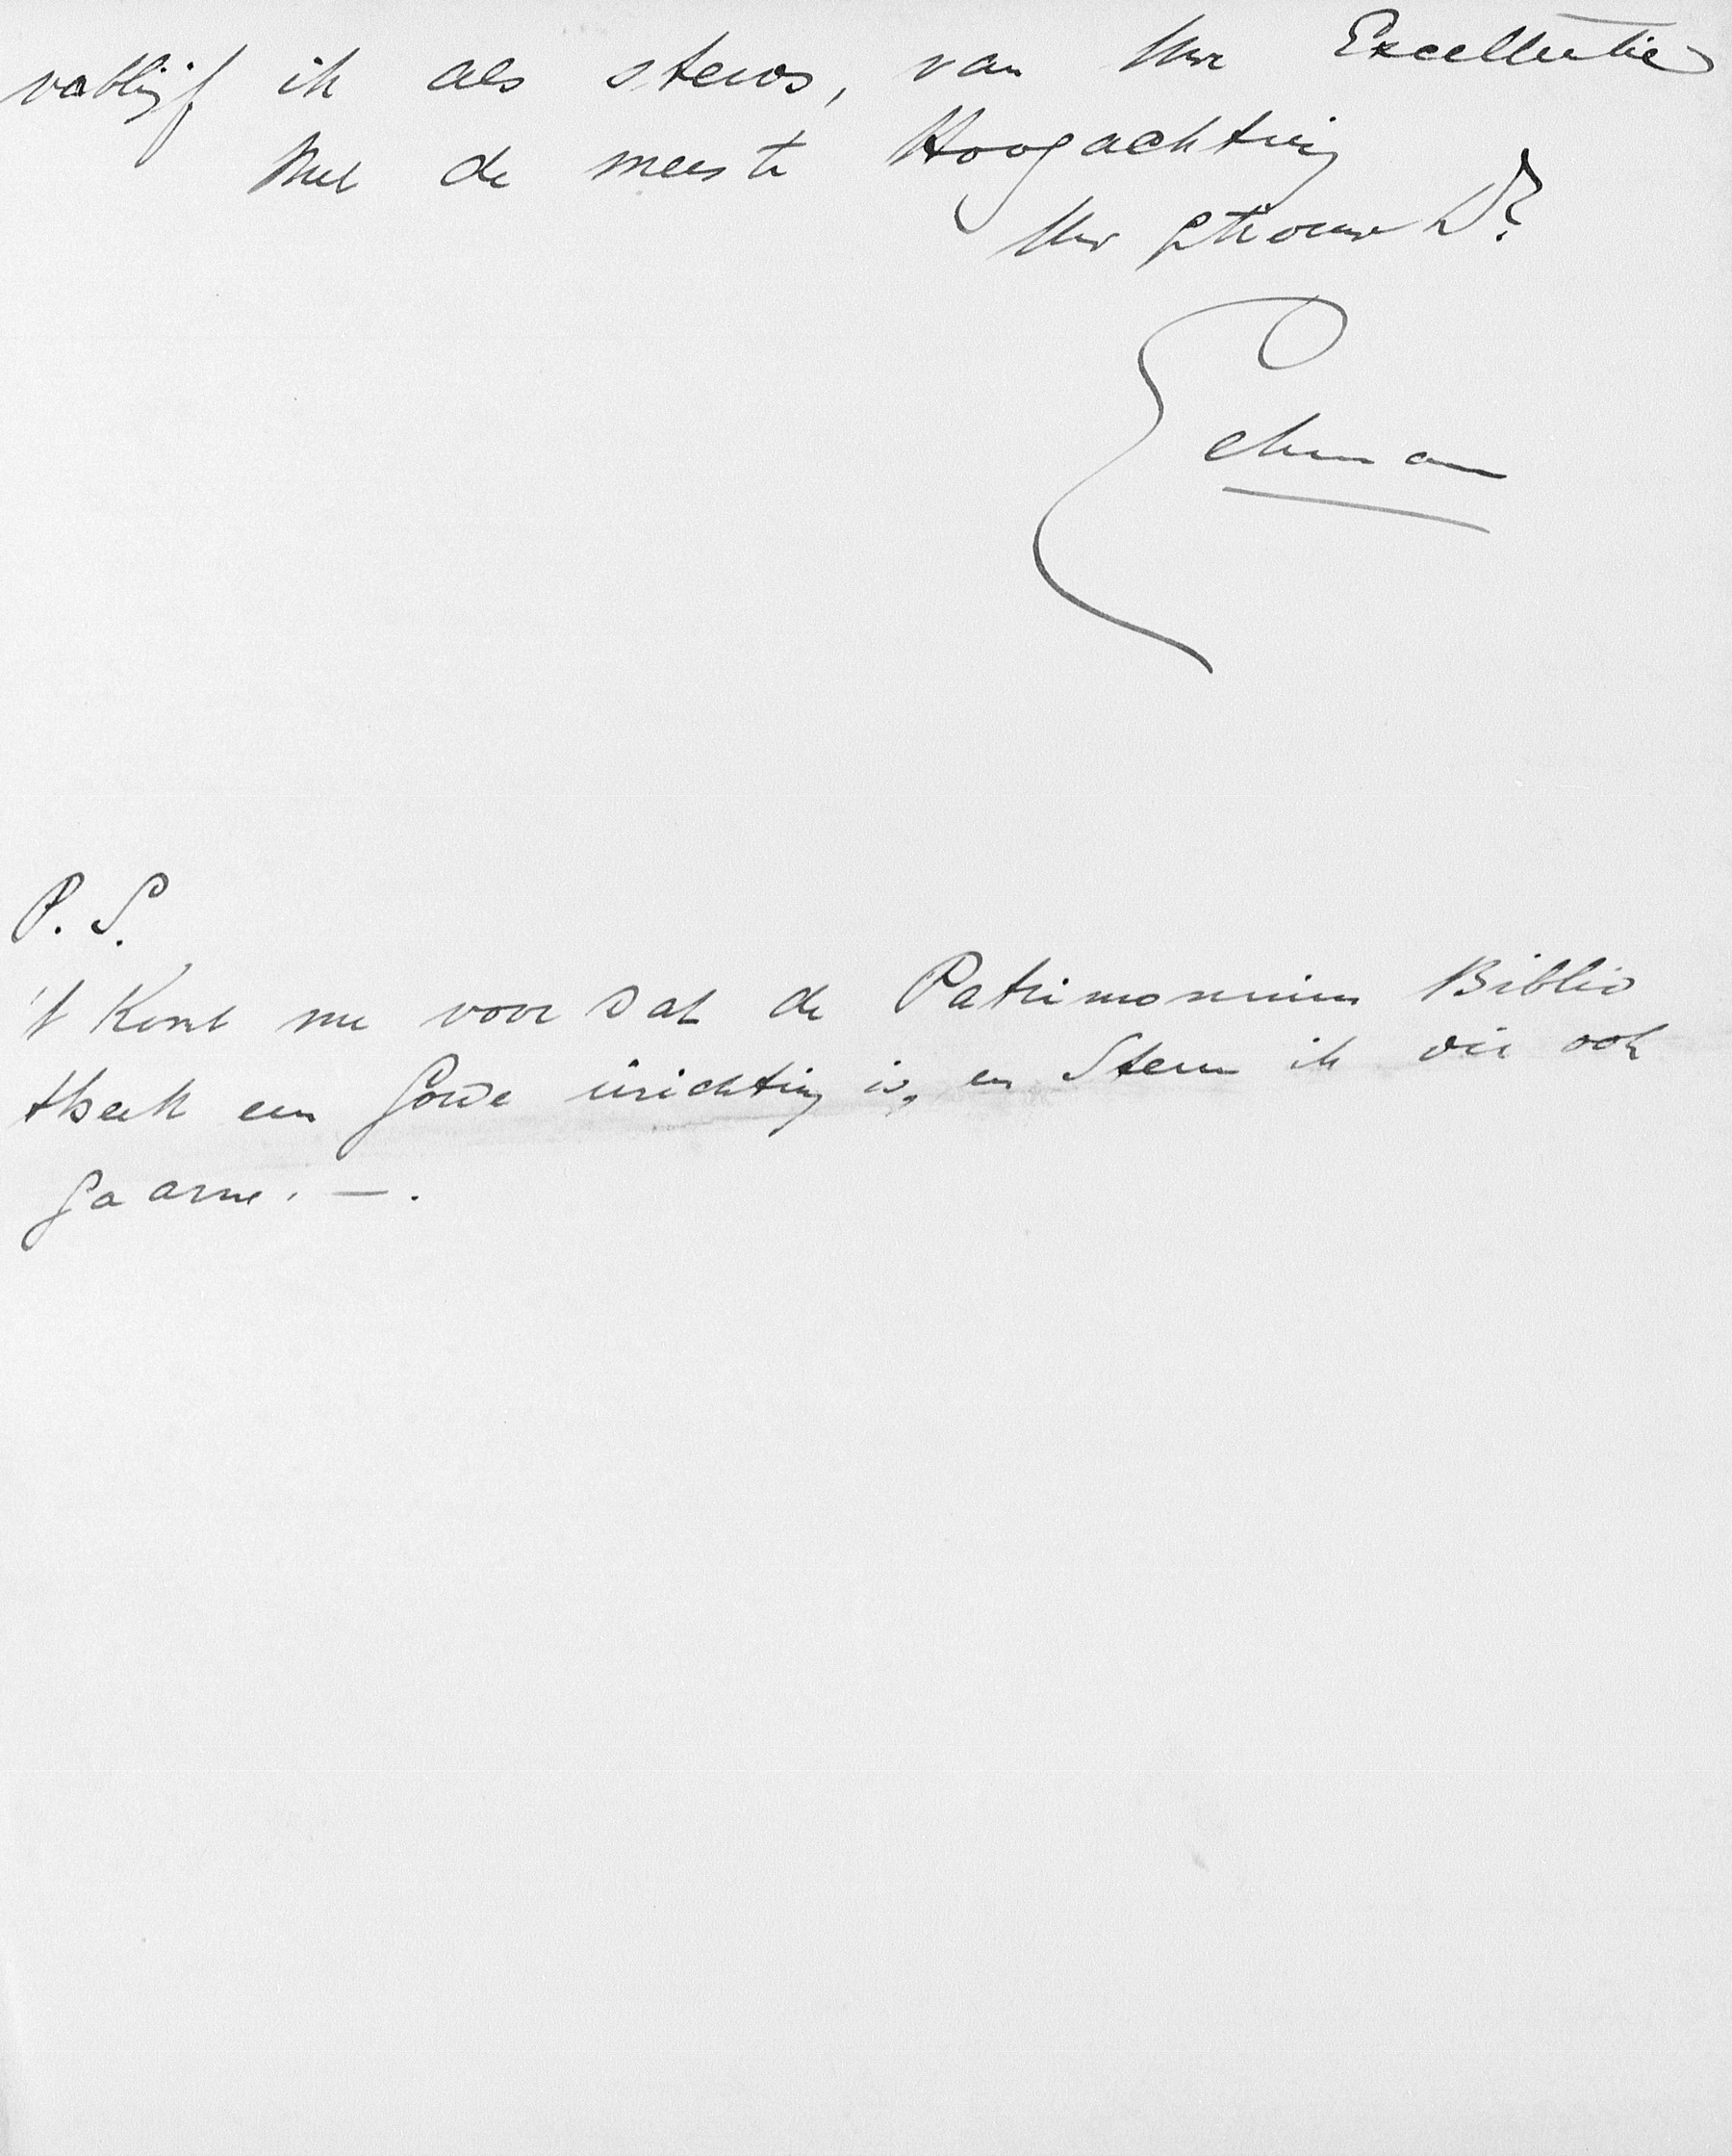 verblijf ik als steeds, van Uwe Excellentie
Met de meeste Hoogachting
Uw getrouwe Dr
P. S.
't Komt me voor dat de Patrimonium Biblio
theek een goede inrichting is, en steun ik die ook
gaarne. —.